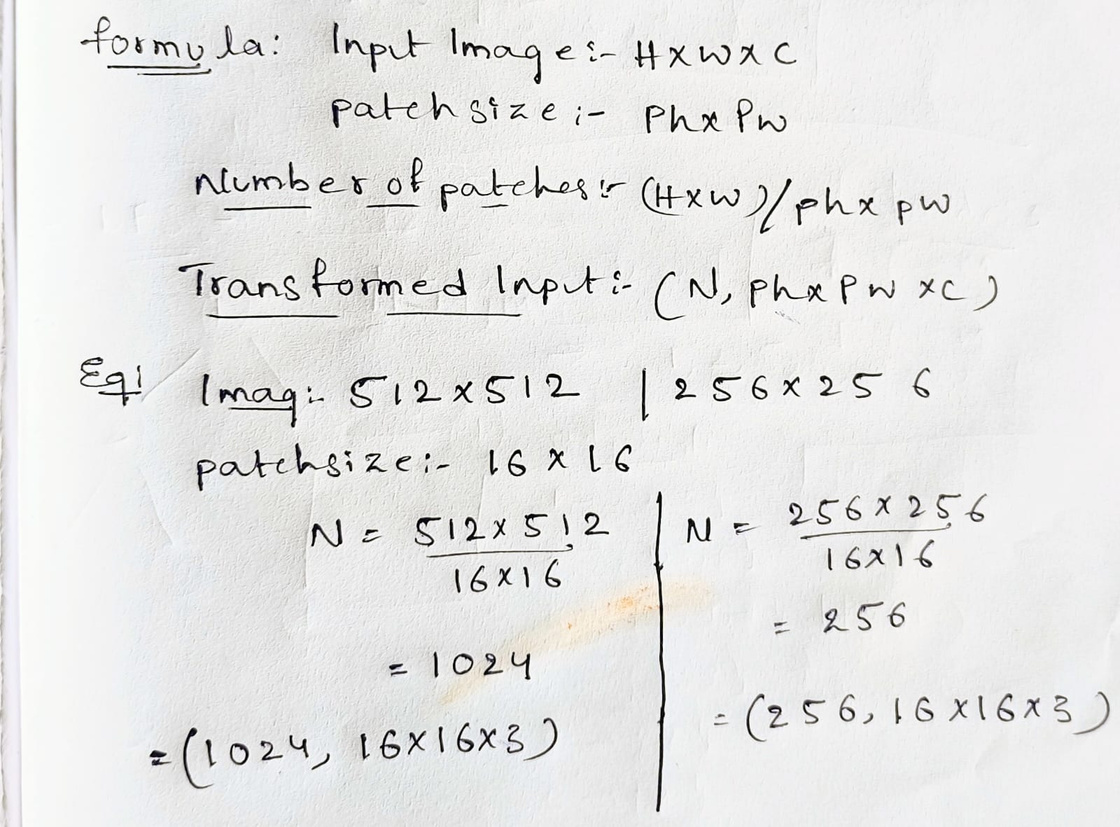 formula: Input Image:- H x W x C
patch size:- Ph x Pw
Number of patches:- (H x W)/ph x pw
Transformed Input:- (N, Ph x Pw x C)
Eg! Imag:- 512 x 512 | 256 x 256
patchsize:- 16 x 16
N = 512 x 512 / 16 x 16
= 1024
= (1024, 16 x 16 x 3)
N = 256 x 256 / 16 x 16
= 256
= (256, 16 x 16 x 3)